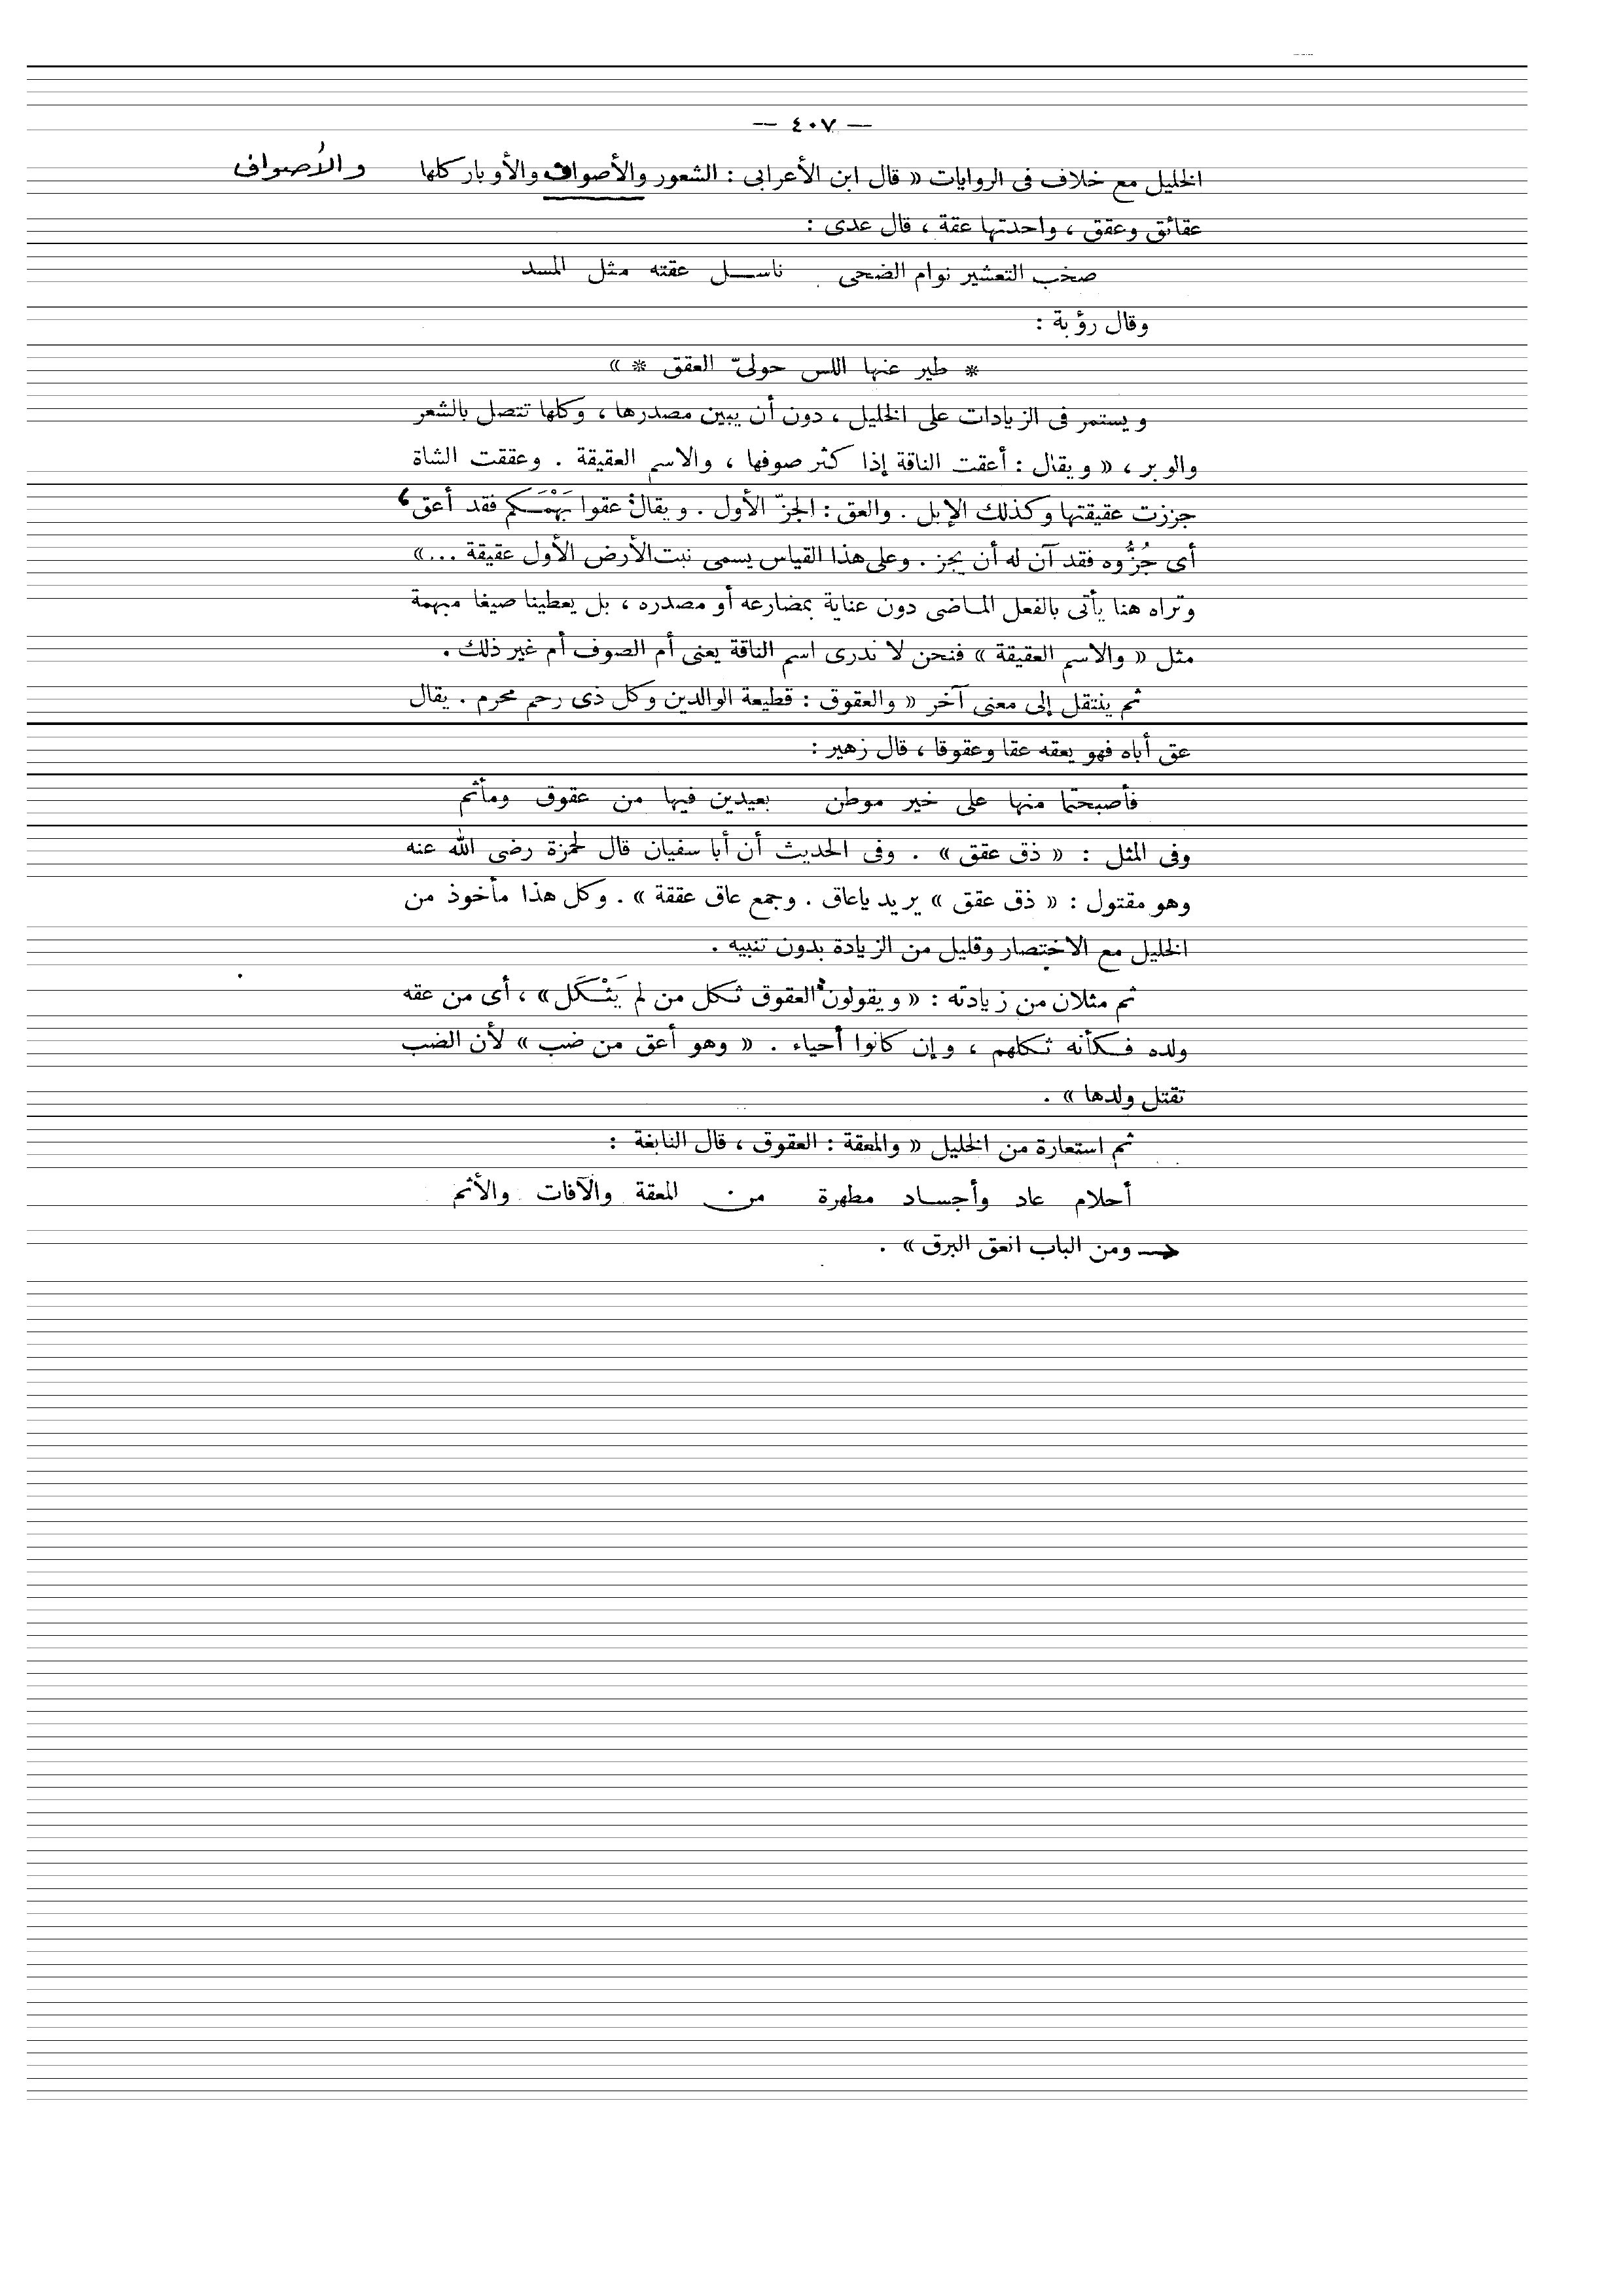 — ٤٠٧ —
الخليل مع خلاف فى الروايات « قال ابن الأعرابى : الشعور والأصواف والأوبار كلها
والأصواف
عقائق وعقق ، واحدتها عقة ، قال عدى :
صخب التعشير نوام الضحى ناســل عقته مثل المسد
وقال رؤبة :
* طير عنها اللس حولىّ العقق * »
ويستمر فى الزيادات على الخليل ، دون أن يبين مصدرها ، وكلها تتصل بالشعر
والوبر ، « ويقال : أعقت الناقة إذا كثر صوفها ، والاسم العقيقة . وعققت الشاة
جززت عقيقتها وكذلك الإبل . والعق : الجزّ الأول . ويقال : عقوا بَهْمَـكم فقد أعق ،
أى جُزُّوه فقد آن له أن يجز . وعلى هذا القياس يسمى نبت الأرض الأول عقيقة ... »
وتراه هنا يأتى بالفعل المـاضى دون عناية بمضارعه أو مصدره ، بل يعطينا صيغا مبهمة
مثل « والاسم العقيقة » فنحن لا ندرى اسم الناقة يعنى أم الصوف أم غير ذلك .
ثم ينتقل إلى معنى آخر « والعقوق : قطيعة الوالدين وكل ذى رحم محرم . يقال
عق أباه فهو يعقه عقا وعقوقا ، قال زهير :
فأصبحتما منها على خير موطن بعيدين فيها من عقوق ومأثم
وفى المثل : « ذق عقق » . وفى الحديث أن أبا سفيان قال لحمزة رضى الله عنه
وهو مقتول : « ذق عقق » يريد ياعاق . وجمع عاق عققة » . وكل هذا مأخوذ من
الخليل مع الاختصار وقليل من الزيادة بدون تنبيه .
ثم مثلان من زيادته : « ويقولون : العقوق ثـكل من لم يَثْـكَل » ، أى من عقه
ولده فـكأنه ثـكلهم ، وإن كانوا أحياء . « وهو أعق من ضب » لأن الضب
تقتل ولدها » .
ثم استعارة من الخليل « والمعقة : العقوق ، قال النابغة :
أحلام عاد وأجسـاد مطهرة من المعقة والآفات والأثم
ومن الباب انعق البرق » .